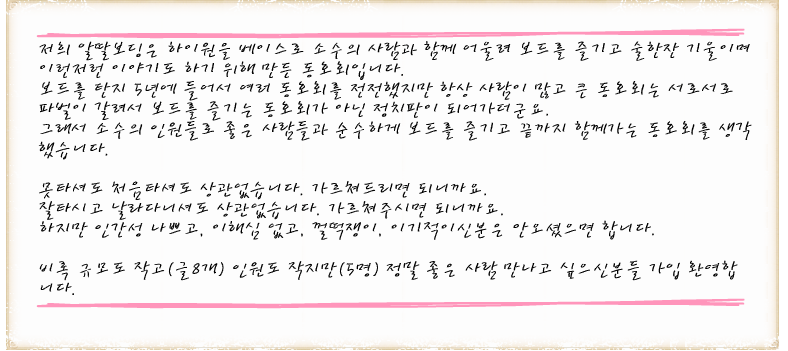 저희 알딸보딩은 하이원을 베이스로 소수의 사람과 함께 어울려 보드를 즐기고 술한잔 기울이며
이런저런 이야기도 하기 위해 만든 동호회입니다.
보드를 탄지 5년에 들어서 여러 동호회를 전전했지만 항상 사람이 많고 큰 동호회는 서로서로
파벌이 갈려서 보드를 즐기는 동호회가 아닌 정치판이 되어가더군요.
그래서 소수의 인원들로 좋은 사람들과 순수하게 보드를 즐기고 끝까지 함께가는 동호회를 생각
했습니다.
못타셔도 처음타셔도 상관없습니다. 가르쳐드리면 되니까요.
잘타시고 날라다니셔도 상관없습니다. 가르쳐주시면 되니까요.
하지만 인간성 나쁘고, 이해심 없고, 껄떡쟁이, 이기적이신분은 안오셨으면 합니다.
비록 규모도 작고(글8개) 인원도 작지만(5명) 정말 좋은 사람 만나고 싶으신분들 가입 환영합
니다.